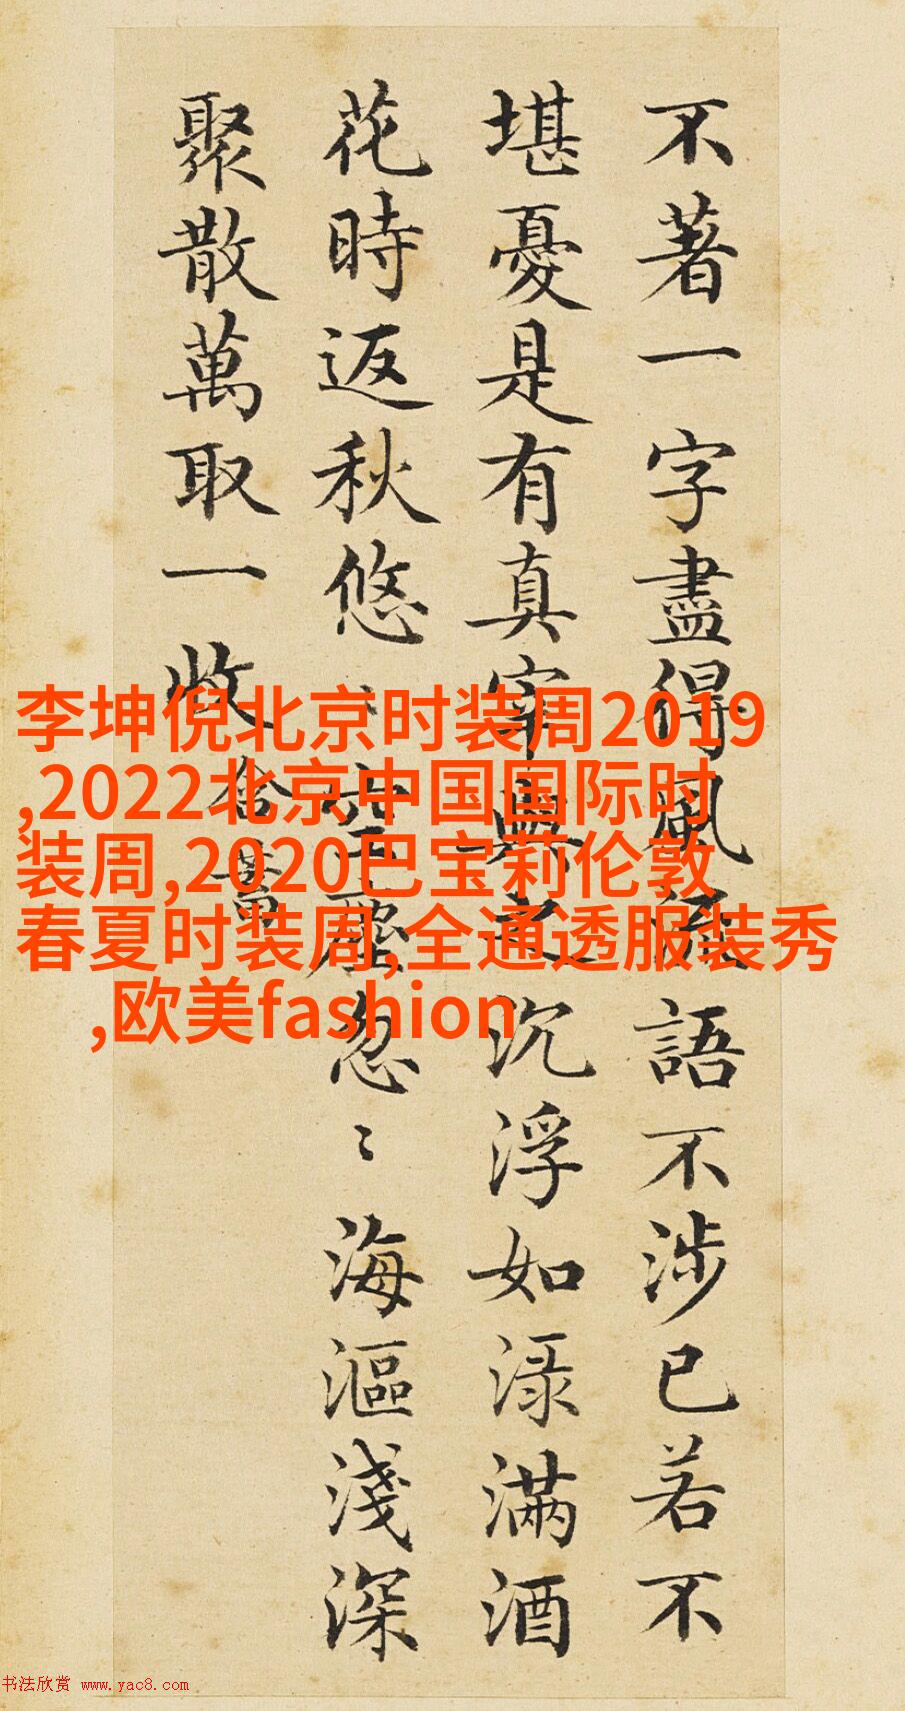 不著一字盡得風流語不涉已若不
堪憂是有真宰與之沉浮如渌滿酒
花時返秋悠〻空塵忽〻海漚淺深
聚散萬取一收 含蓄
李坤倪北京时装周2019
,2022北京中国国际时
装周,2020巴宝莉伦敦
春夏时装周,全通透服装秀
,欧美fashion
书法欣赏 www.yac8.com